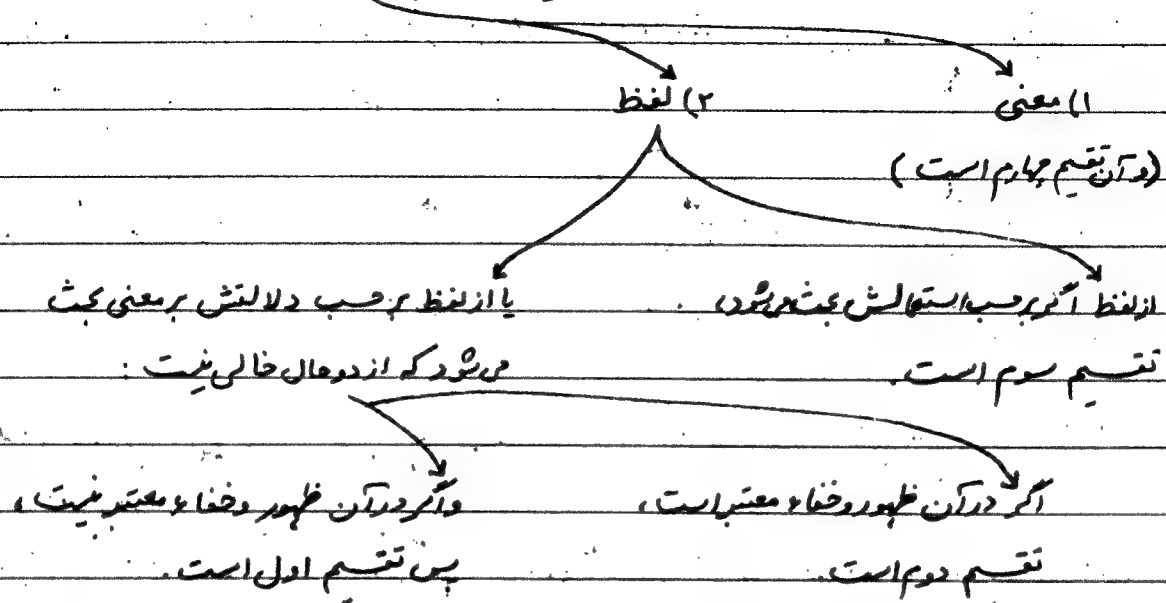 ۱) معنی
۲) لفظ
(و آن تقسیم چهارم است)
از لفظ اگر بر حسب استعمالش بحث می‌شود،
تقسیم سوم است.
یا از لفظ بر حسب دلالتش بر معنی بحث
می‌شود که از دو حال خالی نیست :
اگر در آن ظهور و خفاء معتبر است،
تقسیم دوم است.
و اگر در آن ظهور و خفاء معتبر نیست،
پس تقسیم اول است.